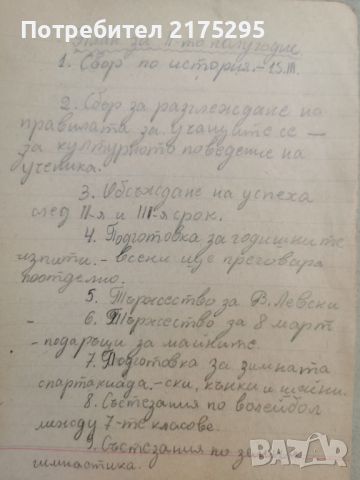 Потребител 2175295
План за II-то полугодие
1. Сбор по история. - 15.III.
2. Сбор за разглеждане на
правилата за учащите се –
за културното поведение на
ученика.
3. Обсъждане на успеха
след II-я и III-я срок.
4. Подготовка за годишните
изпити. - всеки ще преговаря
поотделно.
5. Тържество за В. Левски
- 6. Тържество за 8 март
- подаръци за майките.
7. Подготовка за зимната
спартакиада. - ски, кънки и шейни.
8. Състезания по волейбол
между 7-те класове.
9. Състезания по
гимнастика.
BAZAR